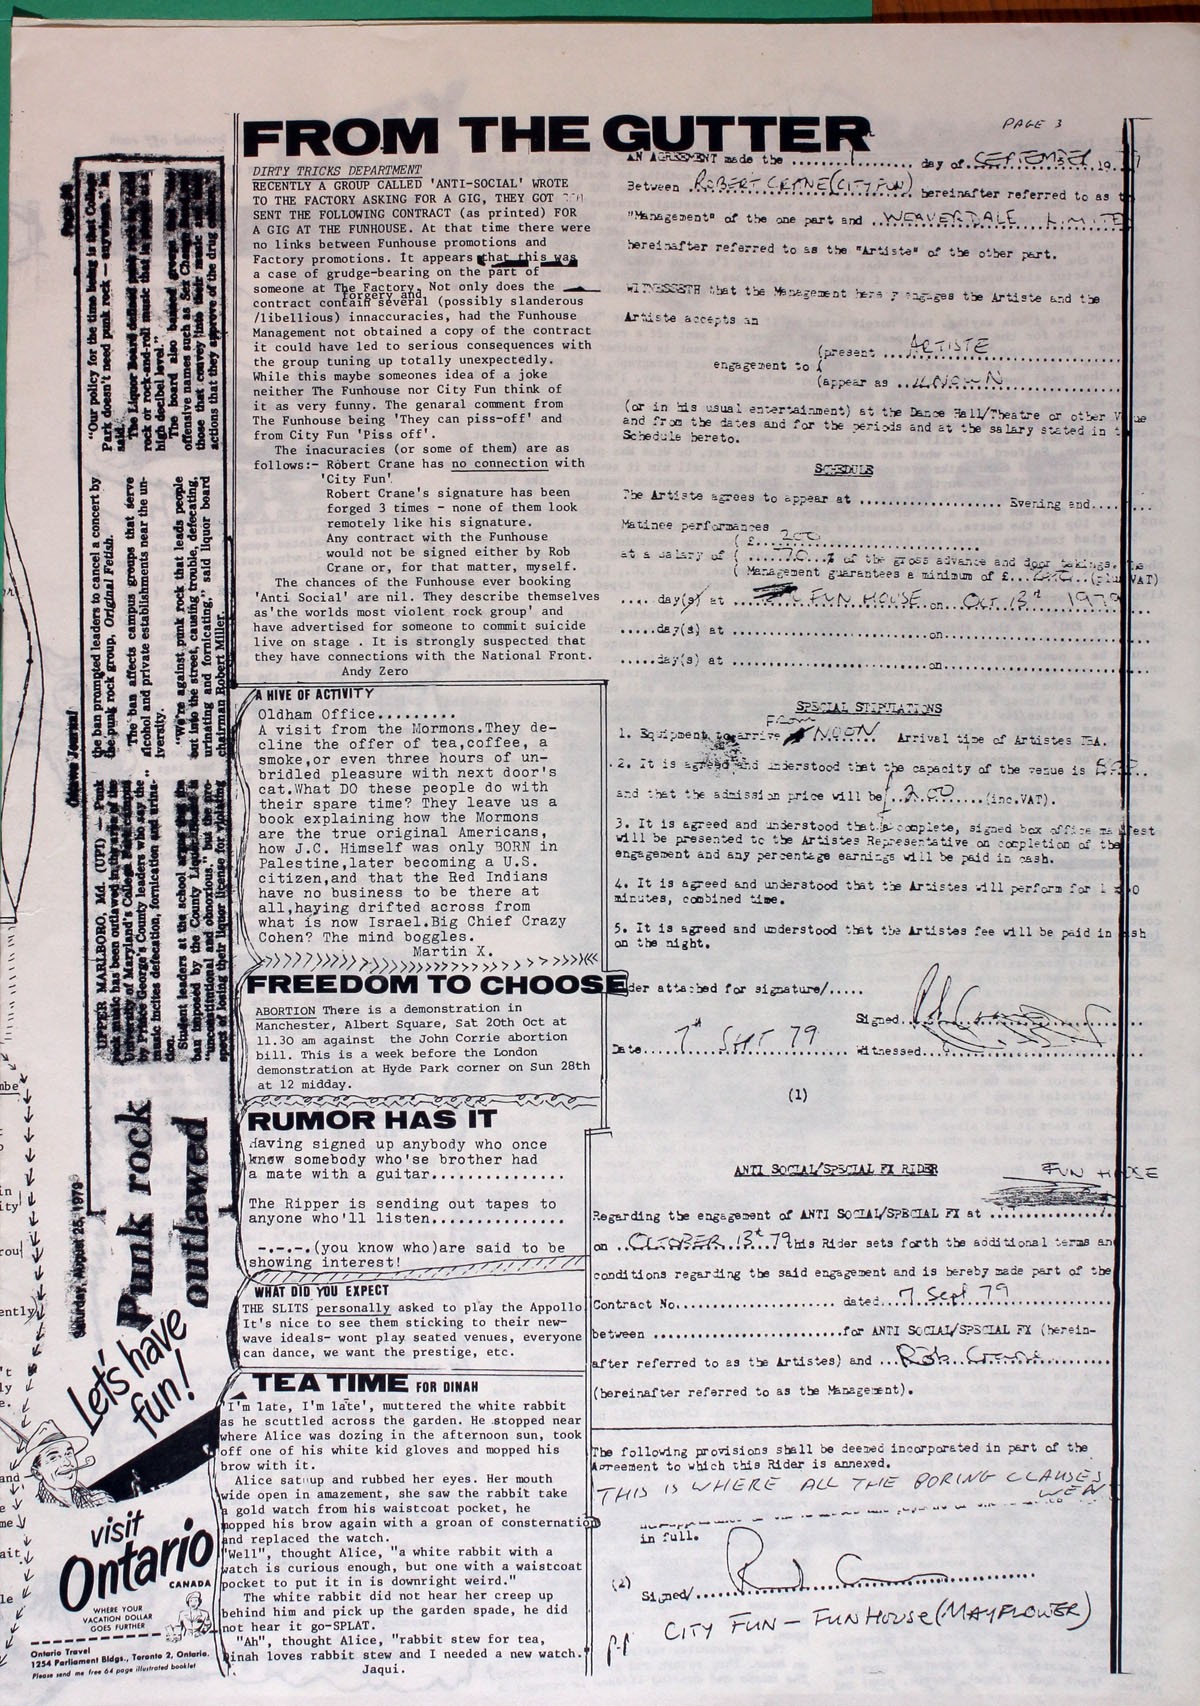 PAGE 3
FROM THE GUTTER
DIRTY TRICKS DEPARTMENT
RECENTLY A GROUP CALLED 'ANTI-SOCIAL' WROTE
TO THE FACTORY ASKING FOR A GIG, THEY GOT
SENT THE FOLLOWING CONTRACT (as printed) FOR
A GIG AT THE FUNHOUSE. At that time there were
no links between Funhouse promotions and
Factory promotions. It appears that this was
a case of grudge-bearing on the part of
someone at The Factory. Not only does the
forgery and
contract contain several (possibly slanderous
/libellious) innaccuracies, had the Funhouse
Management not obtained a copy of the contract
it could have led to serious consequences with
the group tuning up totally unexpectedly.
While this maybe someones idea of a joke
neither The Funhouse nor City Fun think of
it as very funny. The genaral comment from
The Funhouse being 'They can piss-off' and
from City Fun 'Piss off'.
The inacuracies (or some of them) are as
follows:- Robert Crane has no connection with
'City Fun'
Robert Crane's signature has been
forged 3 times - none of them look
remotely like his signature.
Any contract with the Funhouse
would not be signed either by Rob
Crane or, for that matter, myself.
The chances of the Funhouse ever booking
'Anti Social' are nil. They describe themselves
as'the worlds most violent rock group' and
have advertised for someone to commit suicide
live on stage . It is strongly suspected that
they have connections with the National Front.
Andy Zero
A HIVE OF ACTIVITY
Oldham Office.........
A visit from the Mormons.They de-
cline the offer of tea,coffee, a
smoke,or even three hours of un-
bridled pleasure with next door's
cat.What DO these people do with
their spare time? They leave us a
book explaining how the Mormons
are the true original Americans,
how J.C. Himself was only BORN in
Palestine,later becoming a U.S.
citizen,and that the Red Indians
have no business to be there at
all,haying drifted across from
what is now Israel.Big Chief Crazy
Cohen? The mind boggles.
Martin X.
FREEDOM TO CHOOSE
ABORTION There is a demonstration in
Manchester, Albert Square, Sat 20th Oct at
11.30 am against the John Corrie abortion
bill. This is a week before the London
demonstration at Hyde Park corner on Sun 28th
at 12 midday.
RUMOR HAS IT
Having signed up anybody who once
knew somebody who'se brother had
a mate with a guitar...............
The Ripper is sending out tapes to
anyone who'll listen...............
-.-.-.(you know who)are said to be
showing interest!
WHAT DID YOU EXPECT
THE SLITS personally asked to play the Appollo
It's nice to see them sticking to their new-
wave ideals- wont play seated venues, everyone
can dance, we want the prestige, etc.
TEA TIME FOR DINAH
'I'm late, I'm late', muttered the white rabbit
as he scuttled across the garden. He stopped near
where Alice was dozing in the afternoon sun, took
off one of his white kid gloves and mopped his
brow with it.
Alice sat up and rubbed her eyes. Her mouth
wide open in amazement, she saw the rabbit take
a gold watch from his waistcoat pocket, he
mopped his brow again with a groan of consternation
and replaced the watch.
"Well", thought Alice, "a white rabbit with a
watch is curious enough, but one with a waistcoat
pocket to put it in is downright weird."
The white rabbit did not hear her creep up
behind him and pick up the garden spade, he did
not hear it go-SPLAT.
"Ah", thought Alice, "rabbit stew for tea,
Dinah loves rabbit stew and I needed a new watch."
Jaqui.
AN AGREEMENT made the ........1........ day of SEPTEMBER 19
Between ROBERT CRANE (CITY FUN) hereinafter referred to as
"Management" of the one part and WEAVERDALE LIMITE
hereinafter referred to as the "Artiste" of the other part.
WITNESSETH that the Management engages the Artiste and the
Artiste accepts an
(present ARTISTE
engagement to (
(appear as KNOWN
(or in his usual entertainment) at the Dance Hall/Theatre or other
and from the dates and for the periods and at the salary stated in
Schedule hereto.
SCHEDULE
The Artiste agrees to appear at ................ Evening and....
Matinee performances
( £...200
at a salary of ( ...70.. % of the gross advance and door takings.
( Management guarantees a minimum of £...200...(plus VAT)
.... day(s) at FUN HOUSE on OCT 13th 1979
.....day(s) at ........................on
.....day(s) at ........................on
SPECIAL STIPULATIONS
1. Equipment to arrive FROM NOON..... Arrival time of Artistes TBA.
2. It is agreed and understood that the capacity of the venue is
and that the admission price will be £.2.00....(inc.VAT).
3. It is agreed and understood that a complete, signed box office
will be presented to the Artistes Representative on completion of the
engagement and any percentage earnings will be paid in cash.
4. It is agreed and understood that the Artistes will perform for 1 x
minutes, combined time.
5. It is agreed and understood that the Artistes fee will be paid in
on the night.
der attached for signature/.....
Signed
Date 7th SEPT 79 Witnessed
(1)
ANTI SOCIAL/SPECIAL FX RIDER
FUN HOUSE
Regarding the engagement of ANTI SOCIAL/SPECIAL FX at
on OCTOBER 13th 79 this Rider sets forth the additional terms an
conditions regarding the said engagement and is hereby made part of the
Contract No..................... dated 7 Sept 79
between ........................for ANTI SOCIAL/SPECIAL FX (herein-
after referred to as the Artistes) and Rob Crane
(hereinafter referred to as the Management).
The following provisions shall be deemed incorporated in part of the
Agreement to which this Rider is annexed.
THIS IS WHERE ALL THE BORING CLAUSES
WENT
in full.
(2)
Signed/
p.p CITY FUN - FUNHOUSE (MAYFLOWER)
Saturday, August 25, 1979
Ottawa Journal
Punk rock
outlawed
UPPER MARLBORO, Md. (UPI) — Punk
rock music has been outlawed in the
University of Maryland's College
by Prince George's County leaders who say the
music incites defecation, fornication and urina-
tion.
Student leaders at the school
ban imposed by the County Liquor
"unconstitutional and obnoxious," but the pro-
spect of losing their liquor license for violating
the ban prompted leaders to cancel a concert by
the punk rock group, Original Fetish.
The ban affects campus groups that serve
alcohol and private establishments near the un-
iversity.
"We're against punk rock that leads people
out into the street, causing trouble, defecating,
urinating and fornicating," said liquor board
chairman Robert Miller.
"Our policy for the time being is that College
Park doesn't need punk rock — anywhere,"
said.
The Liquor Board defined punk rock
rock or rock-and-roll music that is
high decibel level."
The board also banned groups
offensive names such as Sex
those that convey into their music
actions that they approve of the drug
Let's have
fun!
visit
Ontario
CANADA
WHERE YOUR
VACATION DOLLAR
GOES FURTHER
Ontario Travel
1254 Parliament Bldgs., Toronto 2, Ontario.
Please send me free 64 page illustrated booklet